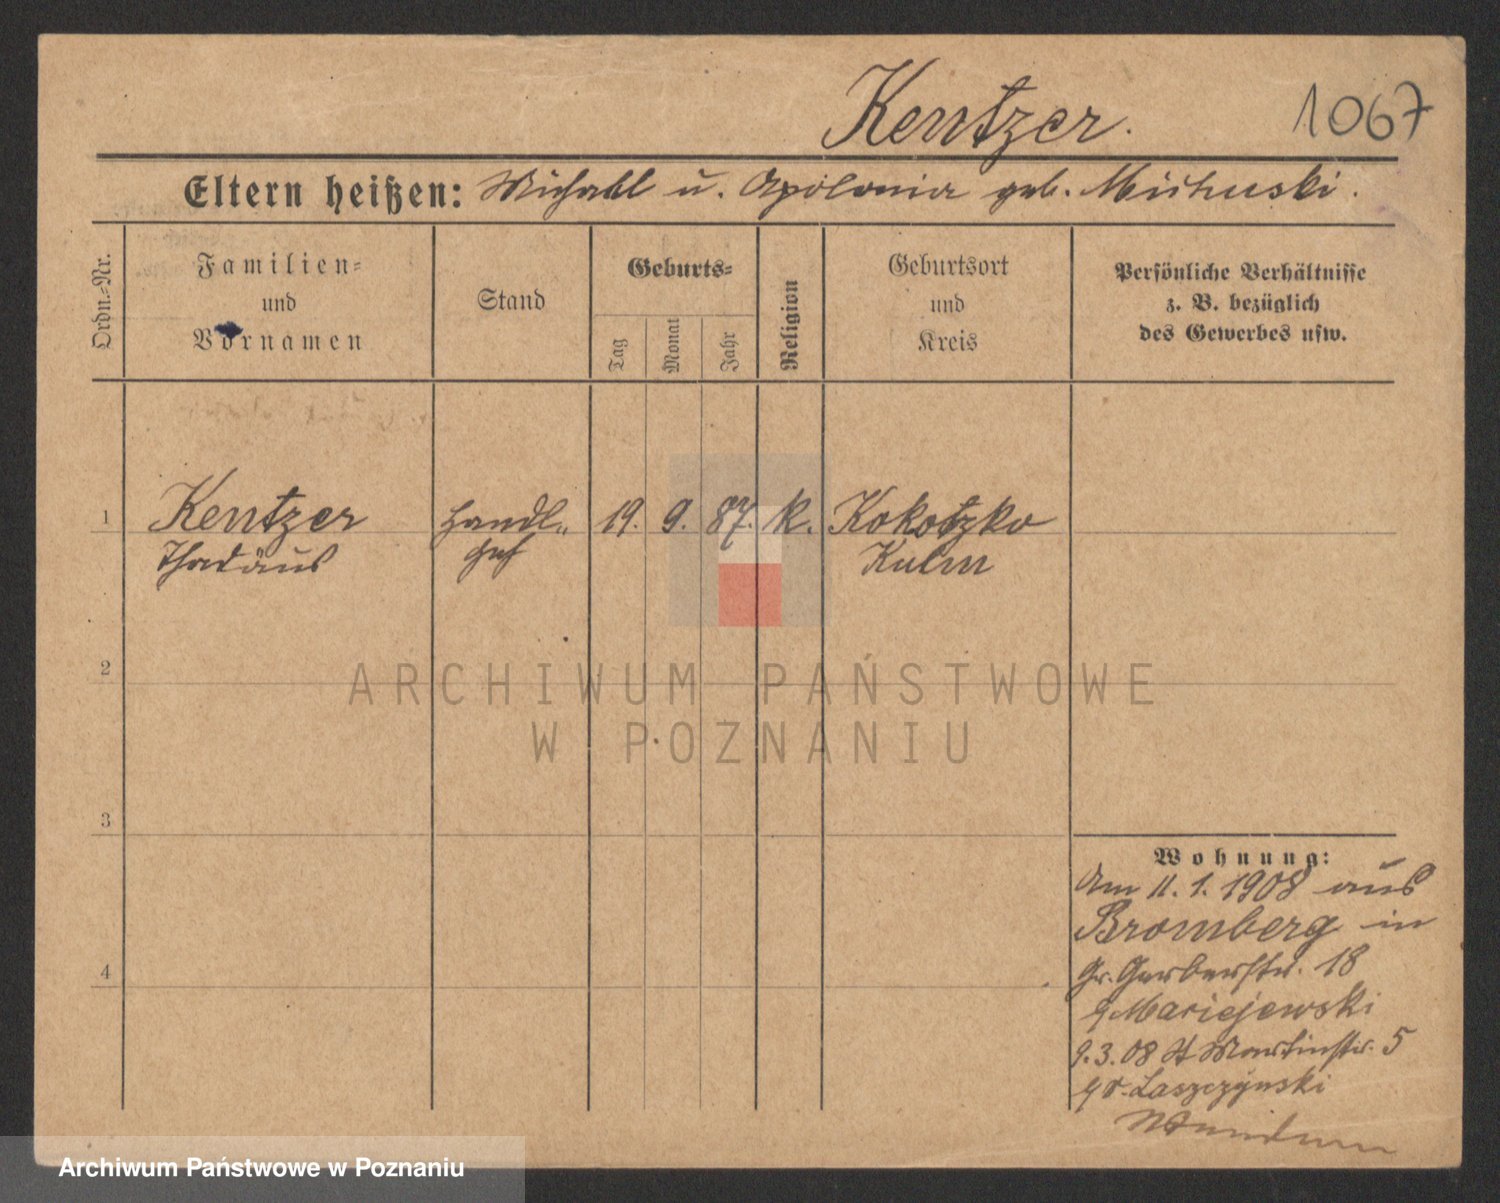 Kentzer.
1067
Eltern heißen: Michael u. Apolonia geb.
Ordn.-Nr.
Familien-
und
Vornamen
Stand
Geburts-
Tag
Monat
Jahr
Religion
Geburtsort
und
Kreis
Persönliche Verhältnisse
z. B. bezüglich
des Gewerbes usw.
1 Kentzer Handl.- 19. 9. 87. k. Kokotzko
Thadäus Geh Kulm
2
3
4
Wohnung:
Am 11. 1. 1908 aus
Bromberg in
Gr. Gerberstr. 18
Maciejewski
9.3.08 St Martinstr. 5
Laszczynski
ARCHIWUM PAŃSTWOWE
W POZNANIU
Archiwum Państwowe w Poznaniu